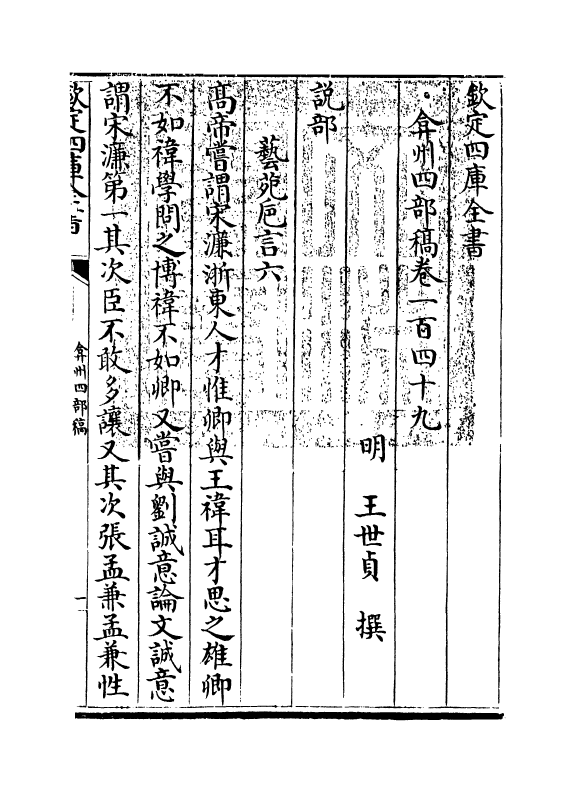 欽定四庫全書
弇州四部稿卷一百四十九
明 王世貞 撰
説部
藝苑巵言六
髙帝嘗謂宋濂浙東人才惟卿與王禕耳才思之雄卿
不如禕學問之博禕不如卿又嘗與劉誠意論文誠意
謂宋濂第一其次臣不敢多讓又其次張孟兼孟兼性
欽定四庫全書
弇州四部稿
一